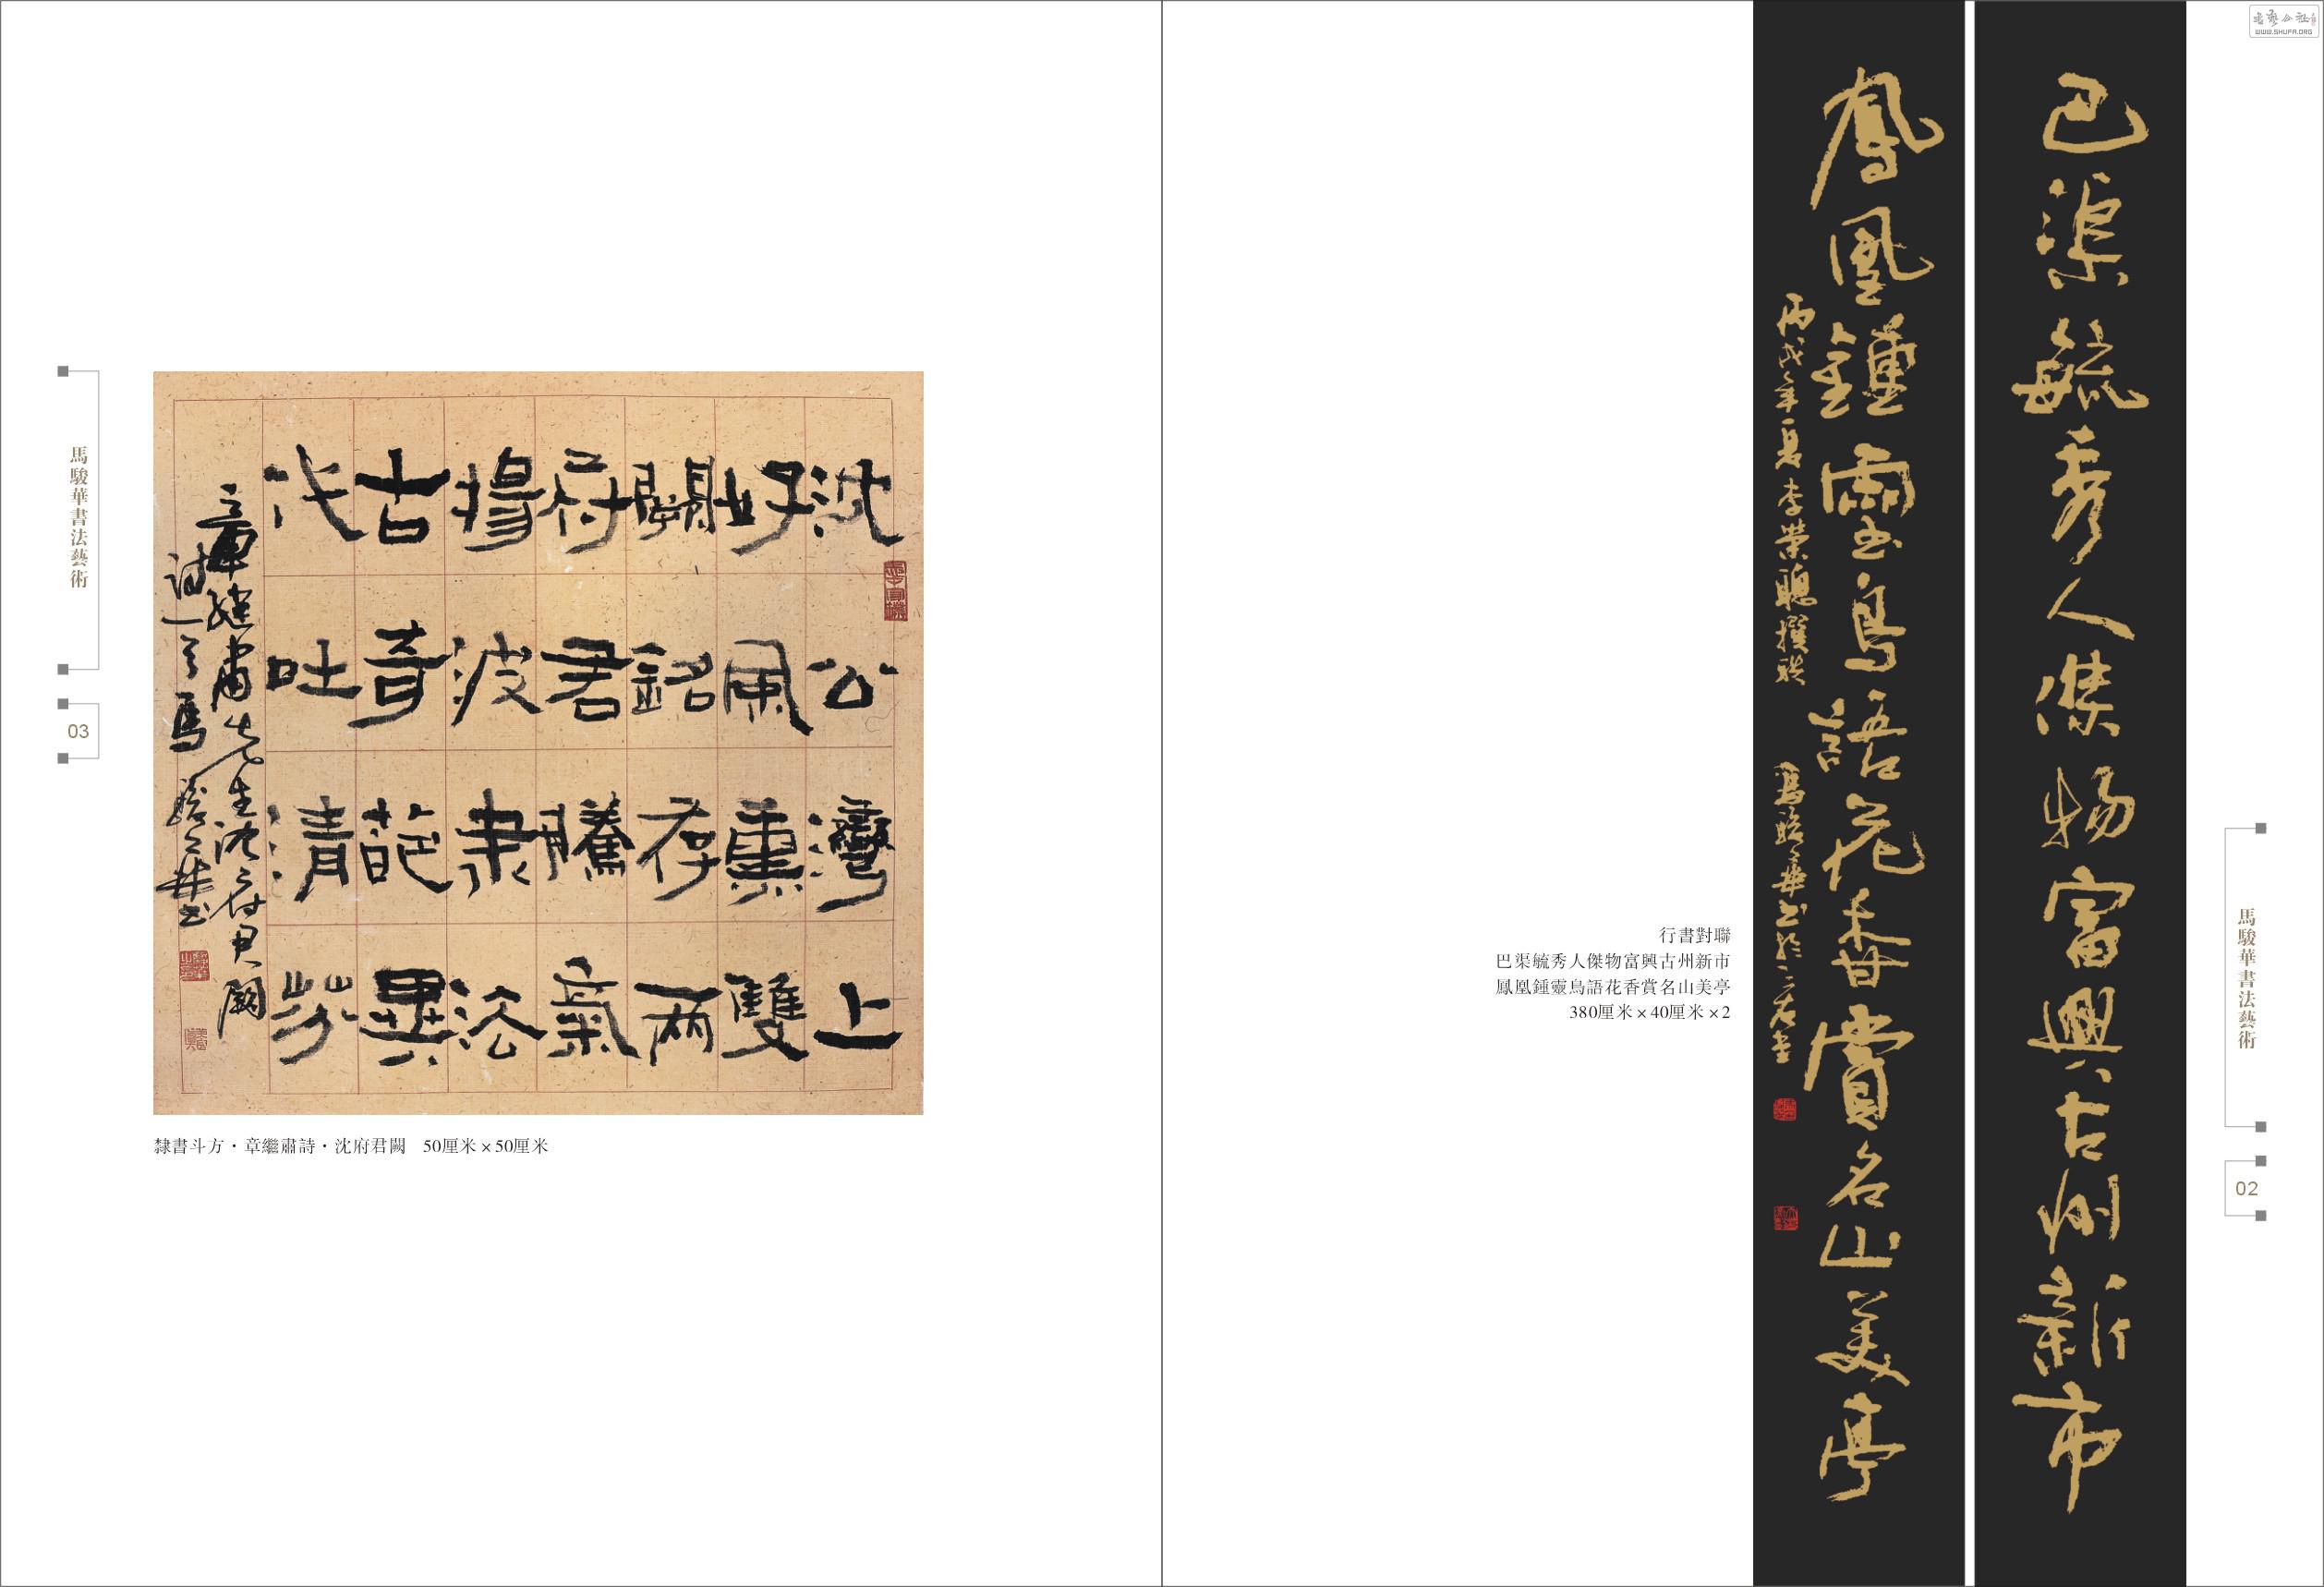 巴渠毓秀人傑物富興古州新市
鳳凰鍾靈鳥語花香賞名山美亭
丙戌年夏李榮聰撰聯
馬駿華書於
行書對聯
巴渠毓秀人傑物富興古州新市
鳳凰鍾靈鳥語花香賞名山美亭
380厘米×40厘米×2
馬駿華書法藝術
02
沈公灣上
好風熏雙
闕銘存兩
府君騰氣
揚波隸法
古奇葩異
代吐清芬
章繼肅先生沈府君闕
詩一首馬駿華書
隸書斗方・章繼肅詩・沈府君闕 50厘米×50厘米
馬駿華書法藝術
03
WWW.SHUFA.ORG